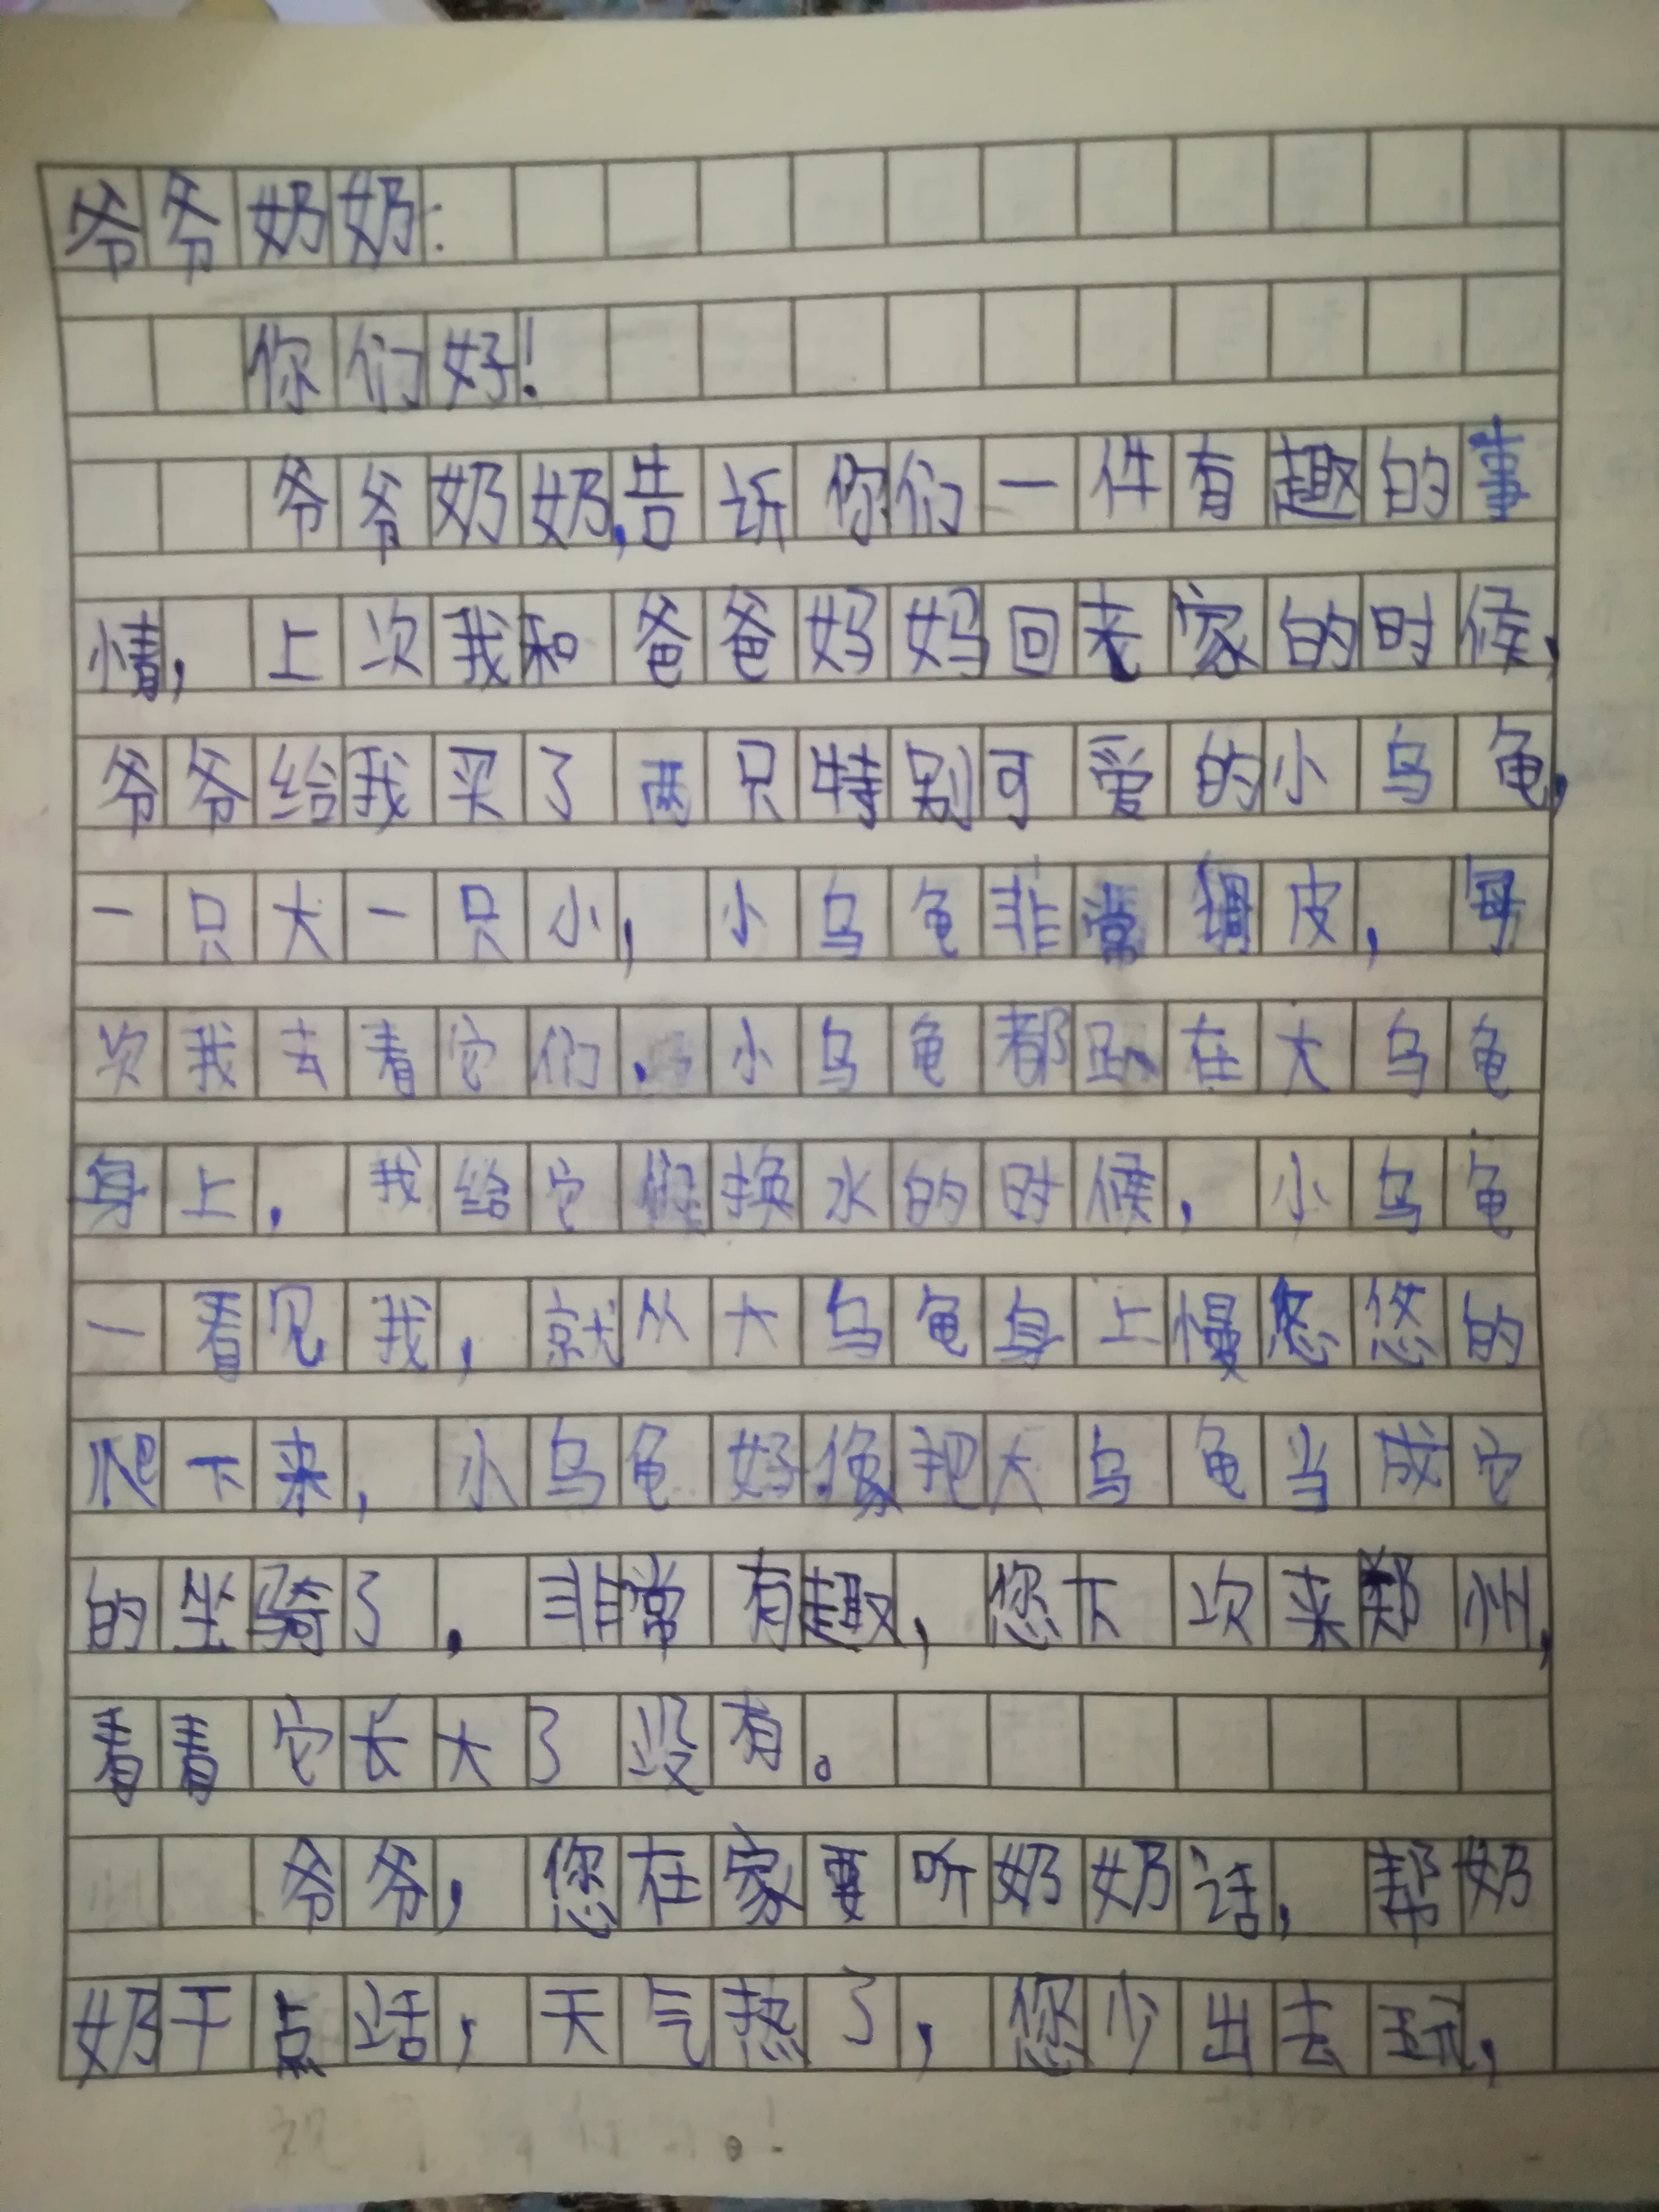 爷爷奶奶:
你们好!
爷爷奶奶,告诉你们一件有趣的事
情,上次我和爸爸妈妈回老家的时候,
爷爷给我买了两只特别可爱的小乌龟,
一只大一只小,小乌龟非常调皮,每
次我去看它们.小乌龟都趴在大乌龟
身上.我给它们换水的时候,小乌龟
一看见我,就从大乌龟身上慢悠悠的
爬下来,小乌龟好像把大乌龟当成它
的坐骑了.非常有趣,您下次来郑州,
看看它长大了没有。
爷爷,您在家要听奶奶话,帮奶
奶干点话,天气热了,您少出去玩,